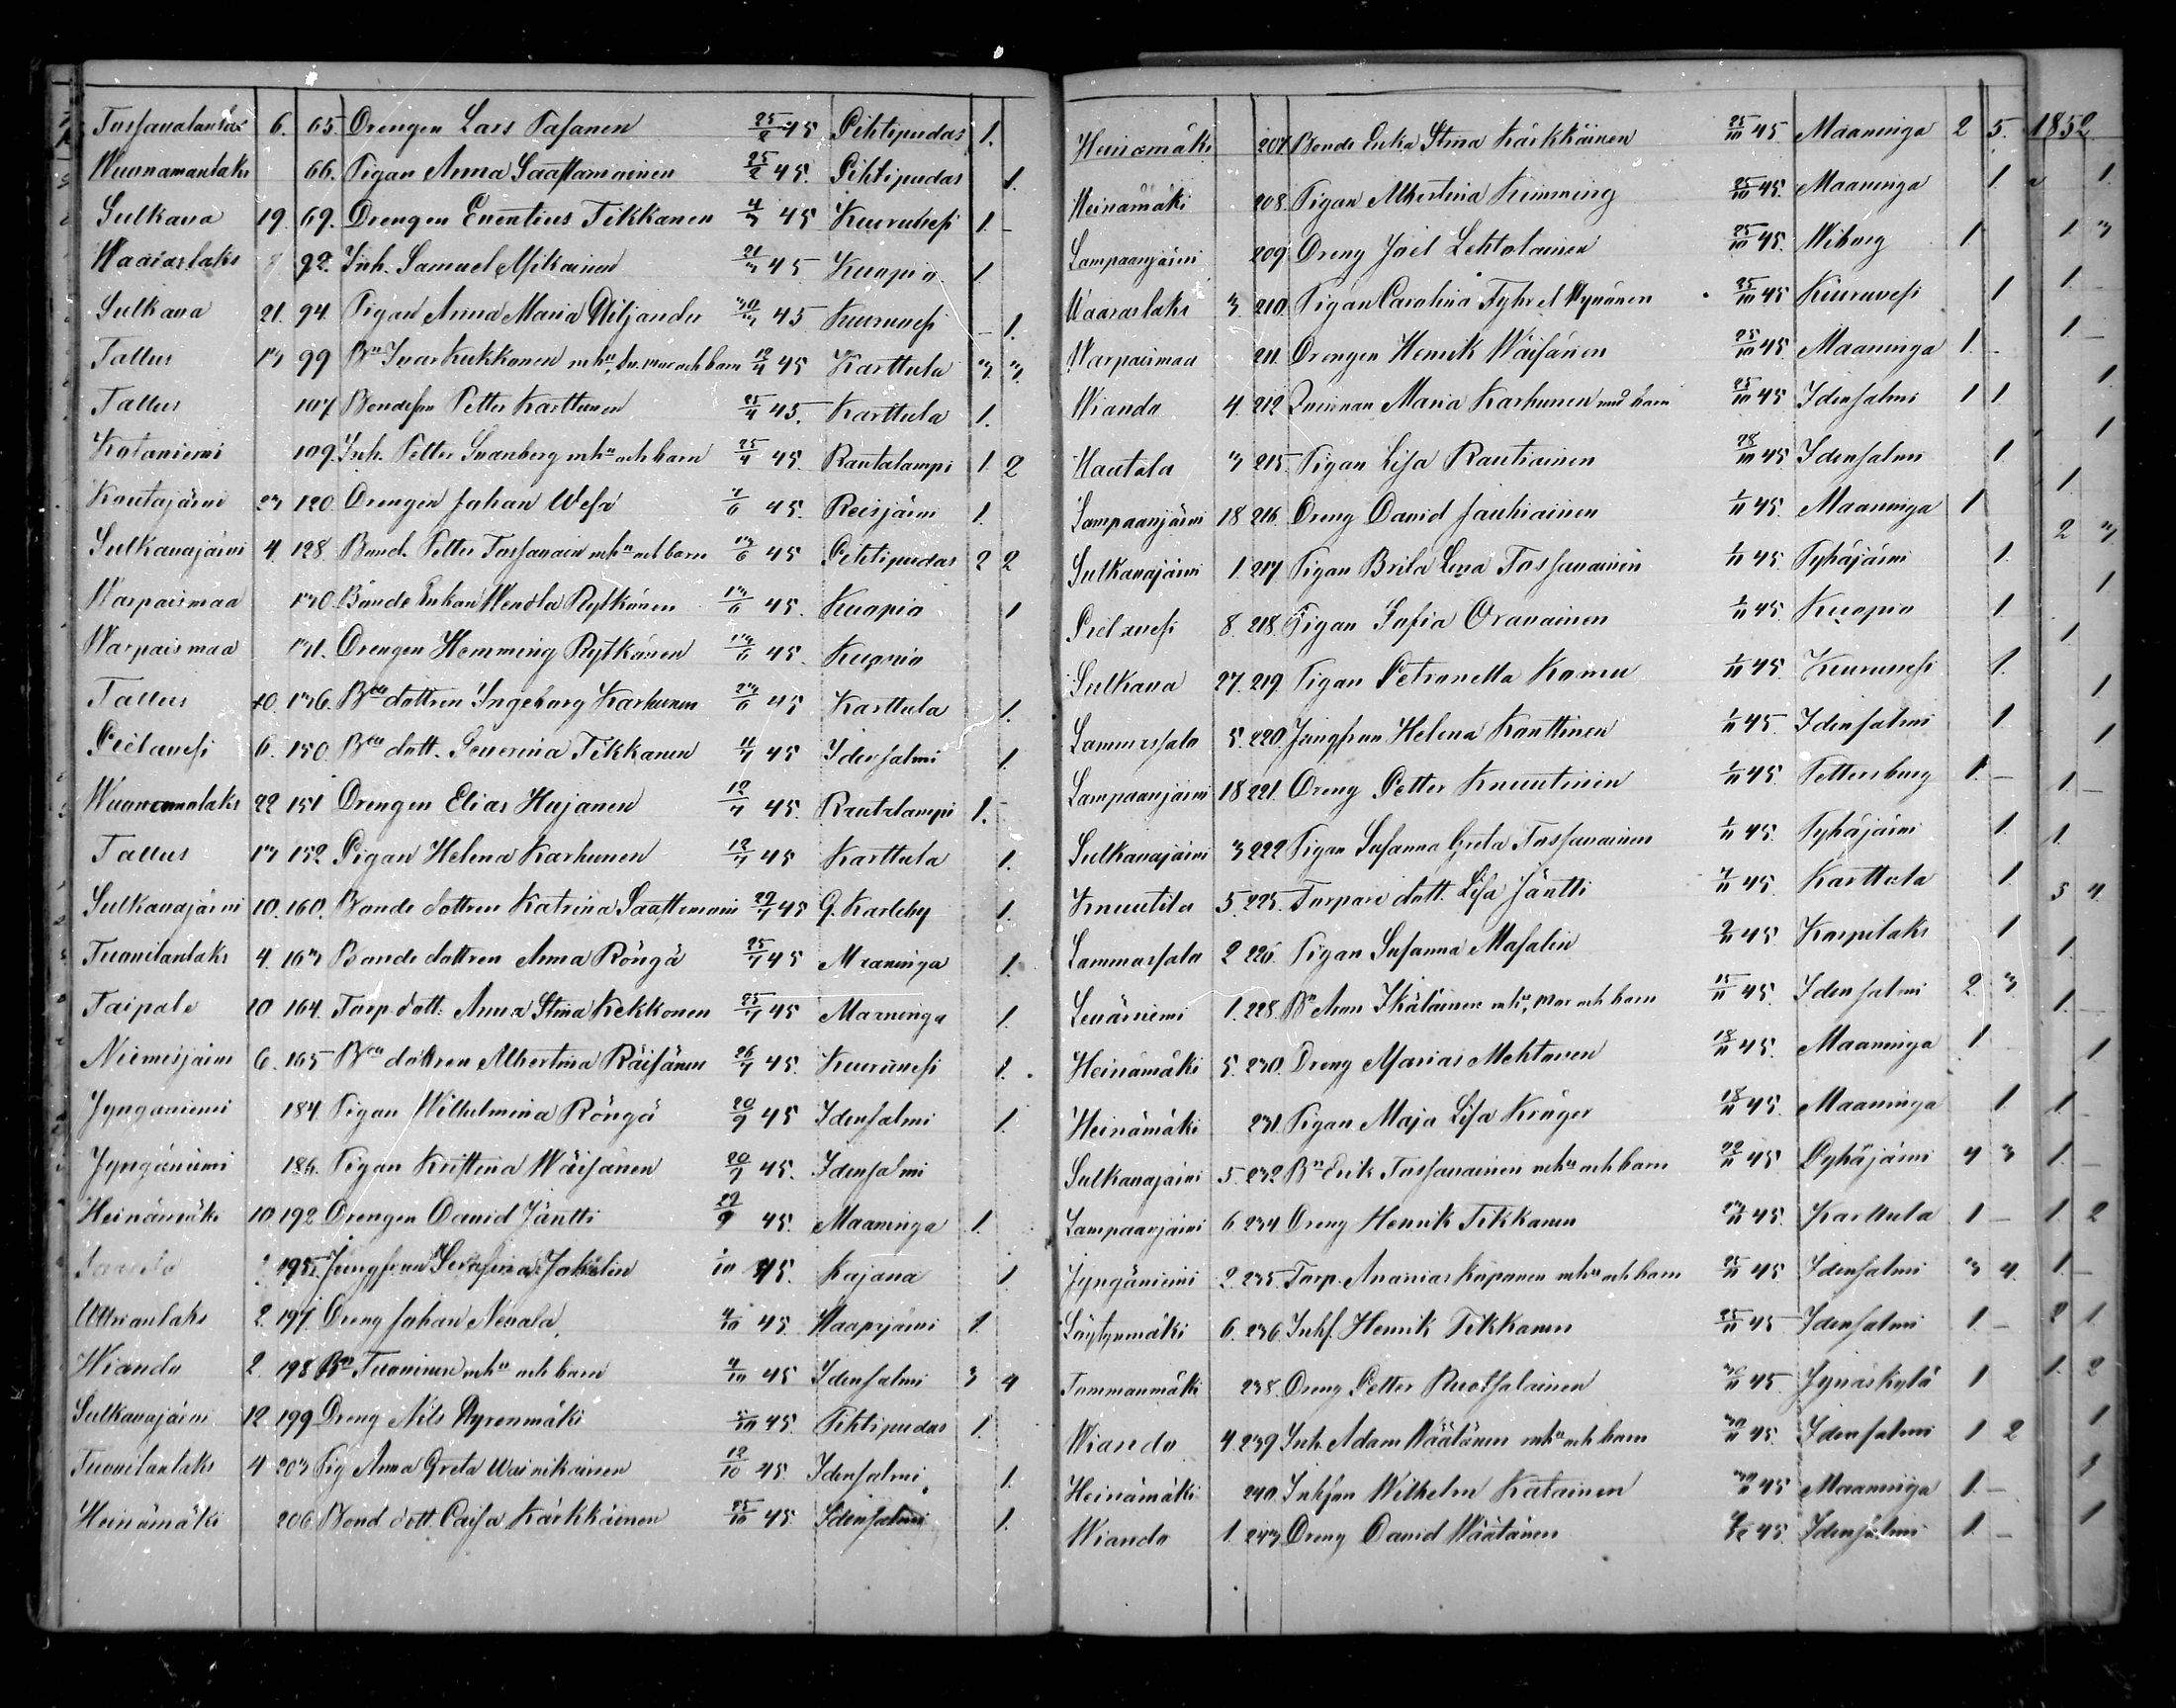 6. 65. Drengen Lars Pasanen 25/2 45 Pihtipudas 1.
Wuonamanlaks 66. Pigan Anna Saastamoinen 25/2 45. Pihtipudas 1.
Sulkava 19. 69. Drengen Eventius Tikkanen 4/3 45 Kiuruvesi 1. -
Waaraslaks 8 92. Inh. Samuel Mikainen 21/3 45 Kuopio 1.
Sulkava 21. 94. Pigan Anna Maria Miljander 30/3 45 Kiuruvesi - 1.
Tallus 13 99 Bn Ivar Kukkonen mhu, sv. mor och barn 12/4 45 Karttula 3. 3.
Tallus 107 Bondeson Petter Karttunen 25/4 45. Karttula 1.
Kotaniemi 109. Inh. Petter Svanberg mhu och barn 25/4 45. Rautalampi 1. 2
Koutajärvi 23 120. Drengen Johan Wesa 7/6 45. Reisjärvi 1.
Sulkavajärvi 4. 128. Bond. Petter Tossavain mhu och barn 13/6 45 Pihtipudas 2 2
Warpaismaa 130. Bonde Enkan Wendla Rytkönen 13/6 45. Kuopio 1
Warpaismaa 131. Drengen Hemming Rytkönen 13/6 45. Kuopio
Tallus 10. 136. Bde dottren Ingeborg Karhunen 23/6 45 Karttula 1.
Pielavesi 6. 150. Bde dott. Severina Tikkanen 4/7 45 Idensalmi 1.
Wuonamalaks 22 151 Drengen Elias Hujanen 12/7 45. Rautalampi 1. -
Tallus 13 152 Pigan Helena Karhunen 12/7 45 Karttula 1.
Sulkavajärvi 10. 160. Bonde dottren Katrina Saastamoin 22/7 45 G. Karleby 1.
Tuovilanlaks 4. 163 Bonde dottren Anna Röngä 25/7 45 Maaninga 1.
Taipale 10 164. Torp. dott. Anna Stina Kekkonen 25/7 45 Maaninga 1.
Niemisjärvi 6. 165 Bde dottren Albertina Räisänen 26/7 45. Kiuruvesi 1.
Jynganiemi 184. Pigan Wilhelmina Röngä 20/9 45 Idensalmi 1.
Jyngäniemi 186. Pigan Kristina Wäisänen 20/9 45. Idensalmi
Heinämäki 10 192 Drengen David Jäntti 29/9 45. Maaninga 1.
195. Jungfrun Serafina Jakalin 1/10 45. Kajana 1
2. 197. Dreng Johan Nevala 4/10 45. Haapajärvi 1.
Wiando 2. 198 Bn Tuovinen mhu och barn 4/10 45 Idensalmi 3 4
Sulkavajärvi 12. 199 Dreng Nils Nyronmäki 5/10 45. Pihtipudas 1.
Tuovilanlaks 4 203 Pig Anna Greta Wainikainen 12/10 45. Idensalmi 1.
Heinämäki 206 Bond. dott. Caisa Kärkkäinen 25/10 45 Idensalmi 1.
Heinämäki 207. Bonde Enka Stina Kärkkäinen 25/10 45 Maaninga 2 5. 1852
Heinämäki 208. Pigan Albertina Kimming 25/10 45. Maaninga 1. 1.
Lampaanjärvi 209 Dreng Joel Lehtolainen 25/10 45. Wiborg 1 1 3
Waaraslaks 3 210. Pigan Carolina Fyhrel Hynönen 25/10 45 Kiuruvesi 1 1. -
Warpaismaa 211. Drengen Henrik Wäisänen 25/10 45 Maaninga 1. - 1 -
Wiando 4. 212 Qvinnan Maria Karhunen med barn 25/10 45 Idensalmi 1 1. 1.
Hautala 3 215. Pigan Lisa Rautiainen 28/10 45 Idensalmi 1. 1
Lampaanjärvi 18 216. Dreng David Jauhiainen 1/11 45. Maaninga 1 1.
Sulkavajärvi 1. 217. Pigan Brita Lena Tossavainen 1/11 45 Pyhäjärvi 1. 2 3
Pielavesi 8. 218. Pigan Sofia Oravainen 1/11 45 Kuopio 1. 1
Sulkava 27. 219. Pigan Petronella Komu 1/11 45. Kiuruvesi 1. 1.
Lammassalo 5. 220. Jungfrun Helena Kanttinen 1/11 45. Idensalmi 1 1
Lampaanjärvi 18 221. Dreng Petter Knuutinen 1/11 45. Pettersburg 1. - 1
Sulkavajärvi 3 222 Pigan Susanna Greta Tossavainen 1/11 45. Pyhäjärvi 1. 1. -
Knuutila 5. 225. Torpare dott. Lisa Jäntti 7/11 45. Karttula 1. 1.
Lammassalo 2 226. Pigan Susanna Masalin 9/11 45 Korpilaks 1 5 4.
Leväniemi 1. 228. Bn Aron Ikäläinen mhu, mor och barn 15/11 45. Idensalmi 2. 3. 1.
Heinämäki 5. 230. Dreng Marias Mehtonen 18/11 45. Maaninga 1 1. -
Heinämäki 231. Pigan Maja Lisa Kröger 18/11 45. Maaninga 1. 1
Sulkavajärvi 5. 232 Bn Erik Tossavainen mhu och barn 22/11 45 Pyhäjärvi 4 3 1. -
Lampaanjärvi 6. 234 Dreng Henrik Tikkanen 23/11 45. Karttula 1 - 1. 2
Jyngäniemi 2. 235. Torp. Ananias Kuponen mhu och barn 25/11 45 Idensalmi 3 4. 1. -
Löytynmäki 6. 236. Inhs. Henrik Tikkanen 25/11 45 Idensalmi 1. - 2 1
Tommanmäki 238. Dreng Petter Ruotsalainen 30/11 45. Jyväskylä 1 1. 2
Wiando 4. 239 Inh. Adam Väätänen mhu och barn 30/11 45. Idensalmi 1 2 1
Heinämäki 240. Inhson Wilhelm Katainen 30/11 45 Maaninga 1. - 1
Wiando 1. 243 Dreng David Väätänen 45. Idensalmi 1. - 1